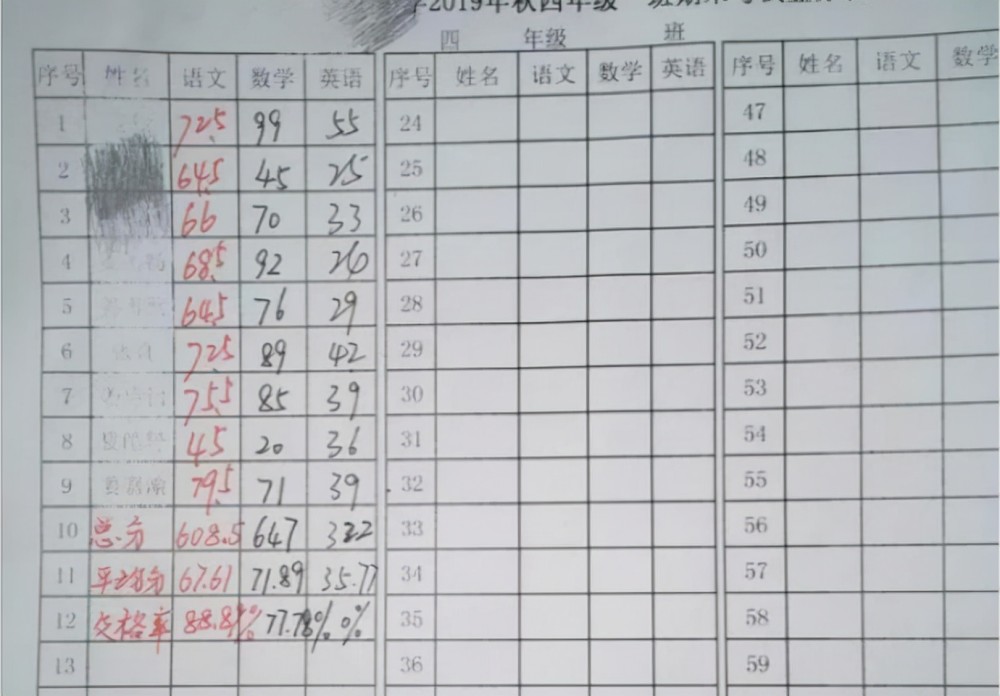 2019年秋四年级 班期末考试
四 年级 班
序号 姓名 语文 数学 英语 序号 姓名 语文 数学 英语 序号 姓名 语文 数学
1 72.5 99 55 24 47
2 64.5 45 25 25 48
3 66 70 33 26 49
4 68.5 92 26 27 50
5 64.5 76 29 28 51
6 72.5 89 42 29 52
7 75.5 85 39 30 53
8 45 20 36 31 54
9 79.5 71 39 32 55
10 总分 608.5 647 322 33 56
11 平均分 67.61 71.89 35.77 34 57
12 及格率 88.89% 77.78% 0% 35 58
13 36 59